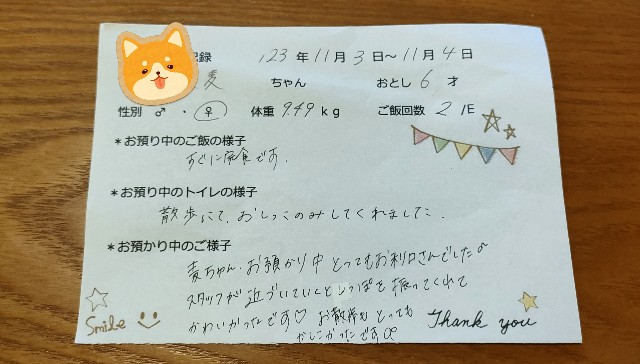 録 '23 年 11 月 3 日～ 11 月 4 日
麦 ちゃん おとし 6 才
性別 ♂ ・ ♀ 体重 9.49 kg ご飯回数 2 /日
＊お預り中のご飯の様子
すぐに完食です.
＊お預り中のトイレの様子
散歩にて、おしっこのみしてくれました.
＊お預かり中のご様子
麦ちゃん、お預かり中 とってもお利口さんでした♪
スタッフが近づいていくとしっぽを振ってくれて
かわいかったです♡ お散歩もとっても
かしこかったです
Smile
Thank you